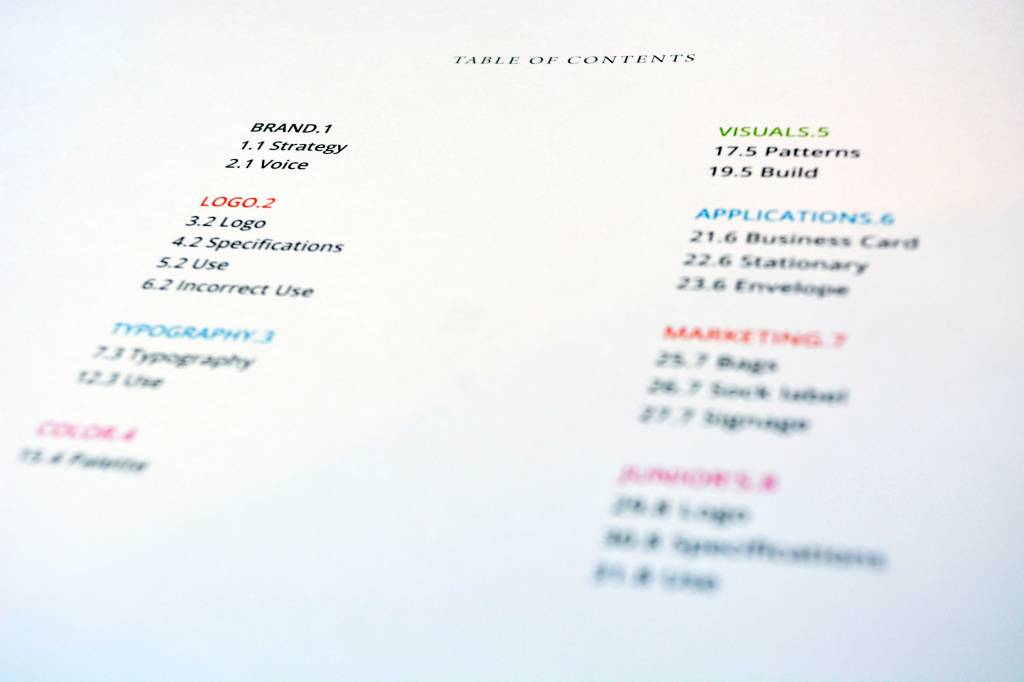 TABLE OF CONTENTS
BRAND.1
1.1 Strategy
2.1 Voice
LOGO.2
3.2 Logo
4.2 Specifications
5.2 Use
6.2 Incorrect Use
TYPOGRAPHY.3
7.3 Typography
12.3 Use
COLOR.4
15.4 Palette
VISUALS.5
17.5 Patterns
19.5 Build
APPLICATIONS.6
21.6 Business Card
22.6 Stationary
23.6 Envelope
MARKETING.7
25.7 Bags
26.7 Sock label
27.7 Signage
JUNIOR'S.8
29.8 Logo
30.8 Specifications
31.8 Use